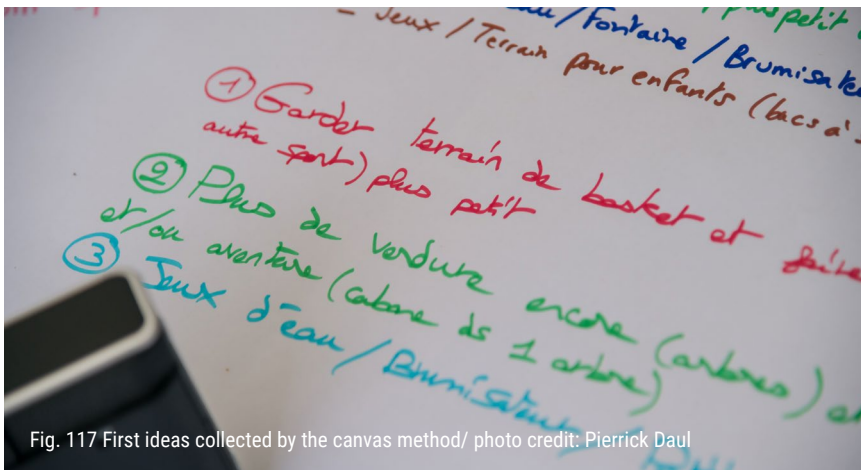 plus petit
/ Fontaine / Brumisate
- Jeux / Terrain pour enfants (bacs à
① Garder terrain de basket et faire
autre sport) plus petit
② Plus de verdure encore (arbres) et
et/ou aventure (cabane ds 1 arbre)
③ Jeux d'eau / Brumisateur /
Fig. 117 First ideas collected by the canvas method/ photo credit: Pierrick Daul